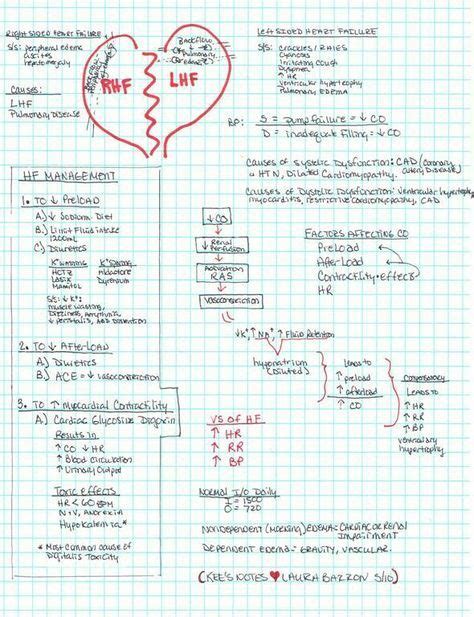 Right Sided Heart Failure
S/S: peripheral edema
ascites
hepatomegaly
Causes:
LHF
Pulmonary Disease
Backflow
(Pulmonary
Edema)
RHF
LHF
Left Sided Heart Failure
S/S: crackles / RALES
Cyanosis
Irritating cough
Dyspnea
↑ HR
Ventricular hypertrophy
Pulmonary EDEMA
BP: S = pump failure = ↓ CO
D = inadequate filling = ↓ CO
Causes of Systolic Dysfunction: CAD (coronary artery disease)
HTN, Dilated Cardiomyopathy.
Causes of Dystolic Dysfunction: ventricular hypertrophy
myocarditis, restrictive cardiomyopathy, CAD
HF MANAGEMENT
1. TO ↓ PRELOAD
A.) ↓ Sodium Diet
B.) Limit Fluid intake
1200mL
C.) Diuretics
K+ wasting
HCTZ
Lasix
Manitol
K+ Sparing
Aldactone
Dyrenium
S/S: ↓ K+:
muscle wasting,
Dizziness, Arrythmia,
↓ peristalsis, ABD distention
2. TO ↓ AFTER-LOAD
A.) Diuretics
B.) ACE = ↓ vasoconstriction
3. TO ↑ Myocardial Contractility
A.) Cardiac Glycoside Digoxin
Results in
↑ CO ↓ HR
↑ Blood circulation
↑ Urinary Output
Toxic effects
HR < 60 BPM
N+V, Anorexia
Hypokalemia*
* Most Common cause of
Digitalis Toxicity
↓ CO
↓ Renal
Perfusion
Activation
RAS
VASOCONSTRICTION
↓K+, ↑ NA+, ↑ Fluid Retention
hyponatrium
(Diluted)
LEADS TO
↑ preload
↑ afterload
↑ CO
Compensatory
LEADS TO
↑ HR
↑ RR
↑ BP
ventricular
hypertrophy
FACTORS AFFECTING CO
PRELOAD
AFTER-LOAD
CONTRACTILITY - effects
HR
VS OF HF
↑ HR
↑ RR
↑ BP
NORMAL I/O Daily
I = 1500
O = 720
NONDEPENDENT (MORNING) EDEMA: CARDIAC OR RENAL
IMPAIRMENT
DEPENDENT EDEMA: GRAVITY, VASCULAR.
(KEE'S NOTES ♥ LAURA BARRON 5/10)